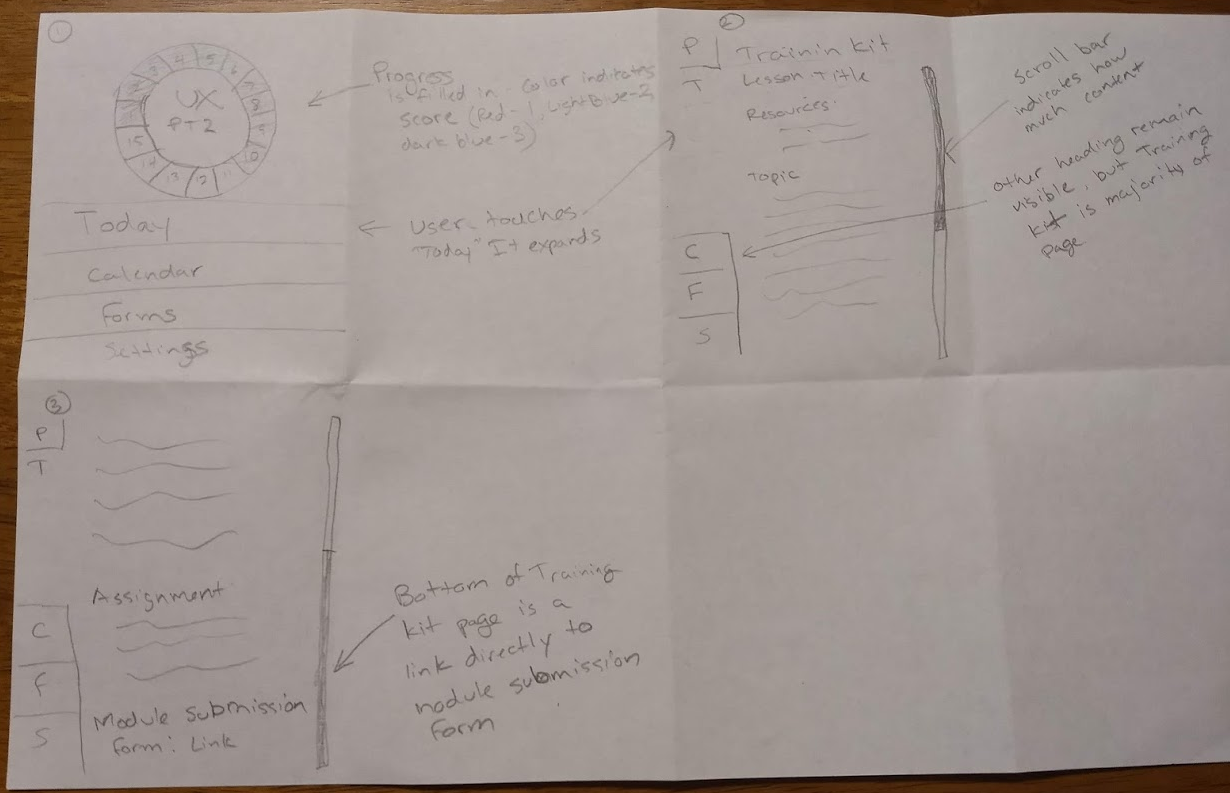 ①
3
4
5
6
7
8
9
10
11
12
13
14
15
UX
PT2
Today
Calendar
Forms
Settings
Progress
is filled in. Color inditates
score (Red-1, Light Blue-2,
dark blue-3)
User touches
"Today" It expands
②
P
T
Trainin Kit
Lesson Title
Resources:
Topic
C
F
S
Scroll bar
indicates how
much content
other heading remain
visible, but Training
kit is majority of
page
③
P
T
Assignment
C
F
S
Module submission
form: Link
Bottom of Training
kit page is a
link directly to
module submission
form